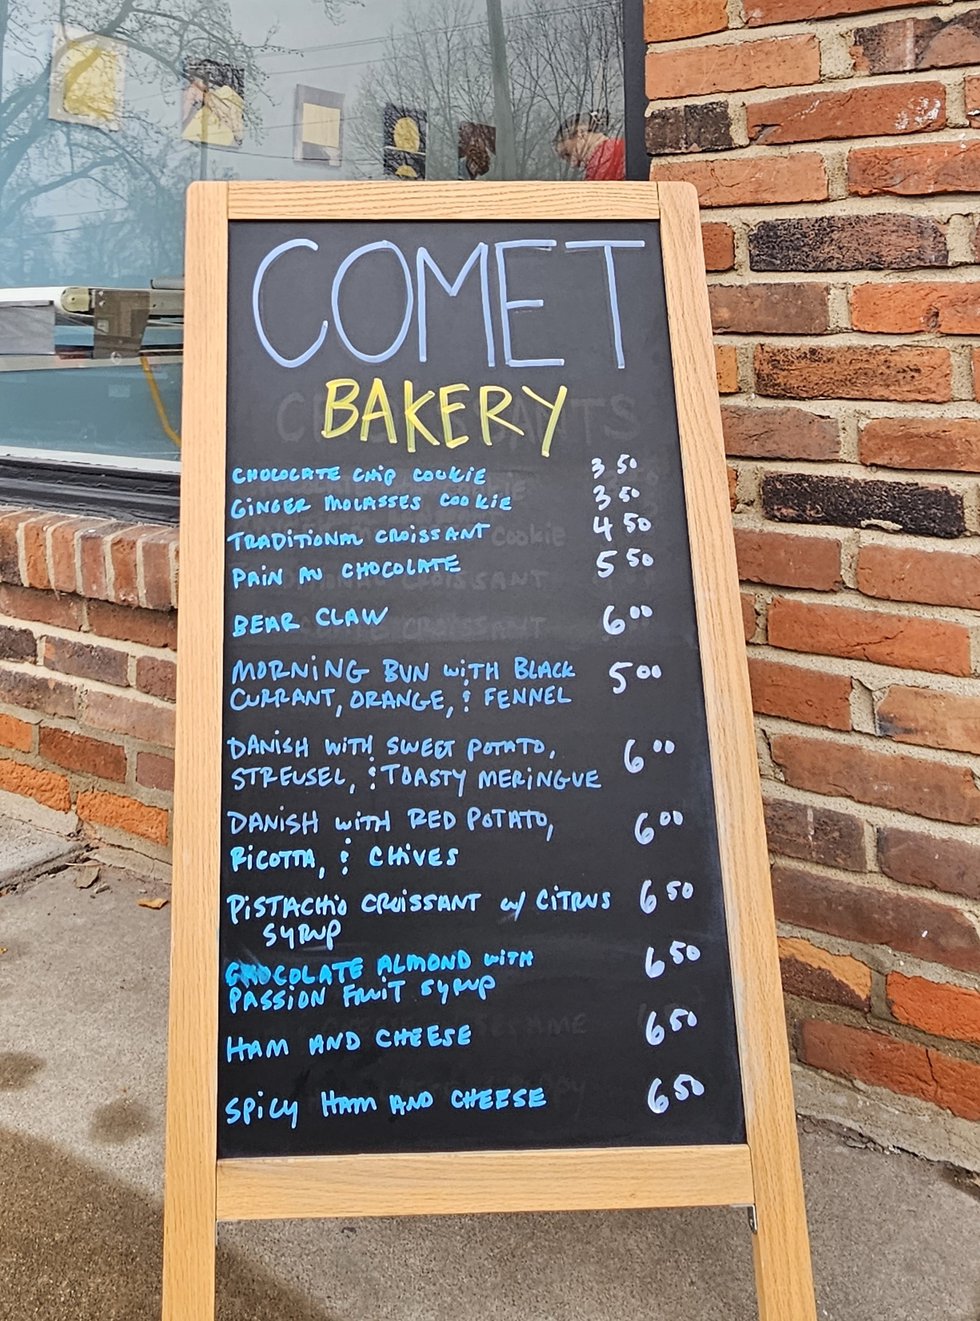 COMET
BAKERY
CHOCOLATE CHIP COOKIE 3 50
GINGER MOLASSES COOKIE 3 50
TRADITIONAL CROISSANT 4 50
PAIN AU CHOCOLATE 5 50
BEAR CLAW 6 00
MORNING BUN WITH BLACK 5 00
CURRANT, ORANGE, & FENNEL
DANISH WITH SWEET POTATO, 6 00
STREUSEL, & TOASTY MERINGUE
DANISH WITH RED POTATO, 6 00
RICOTTA, & CHIVES
PISTACHIO CROISSANT w/ CITRUS 6 50
SYRUP
CHOCOLATE ALMOND WITH 6 50
PASSION FRUIT SYRUP
HAM AND CHEESE 6 50
SPICY HAM AND CHEESE 6 50